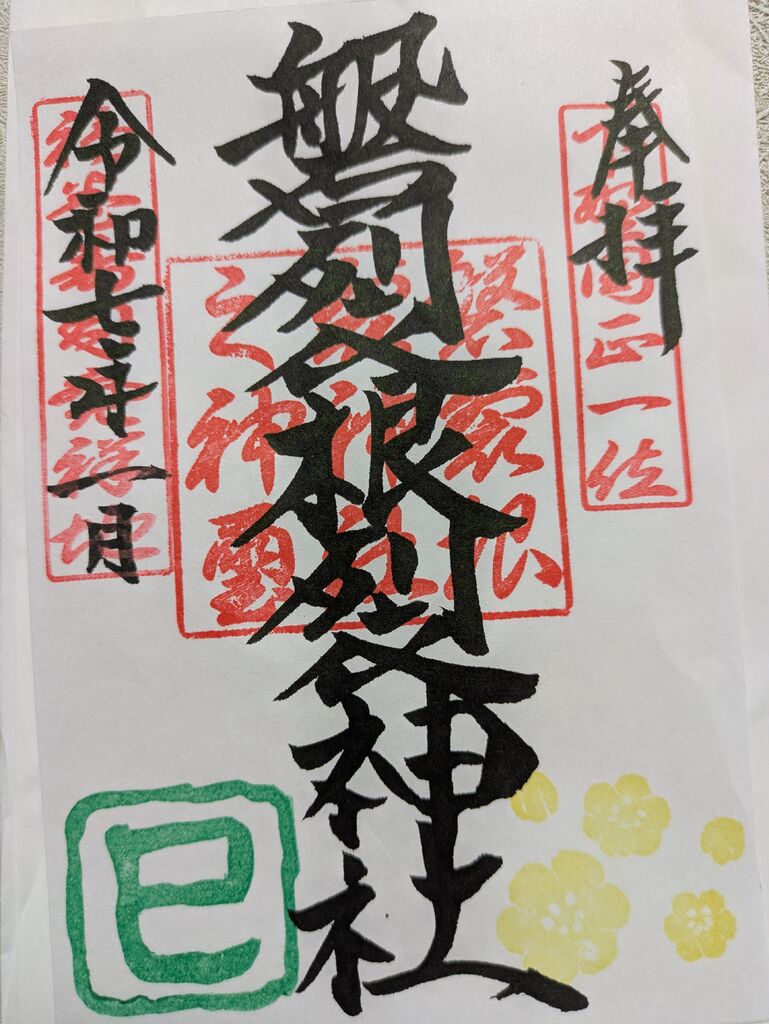 奉拝
下野國正一位
磐裂根裂神社
磐裂根
裂神社
之神璽
令和七年一月
巳